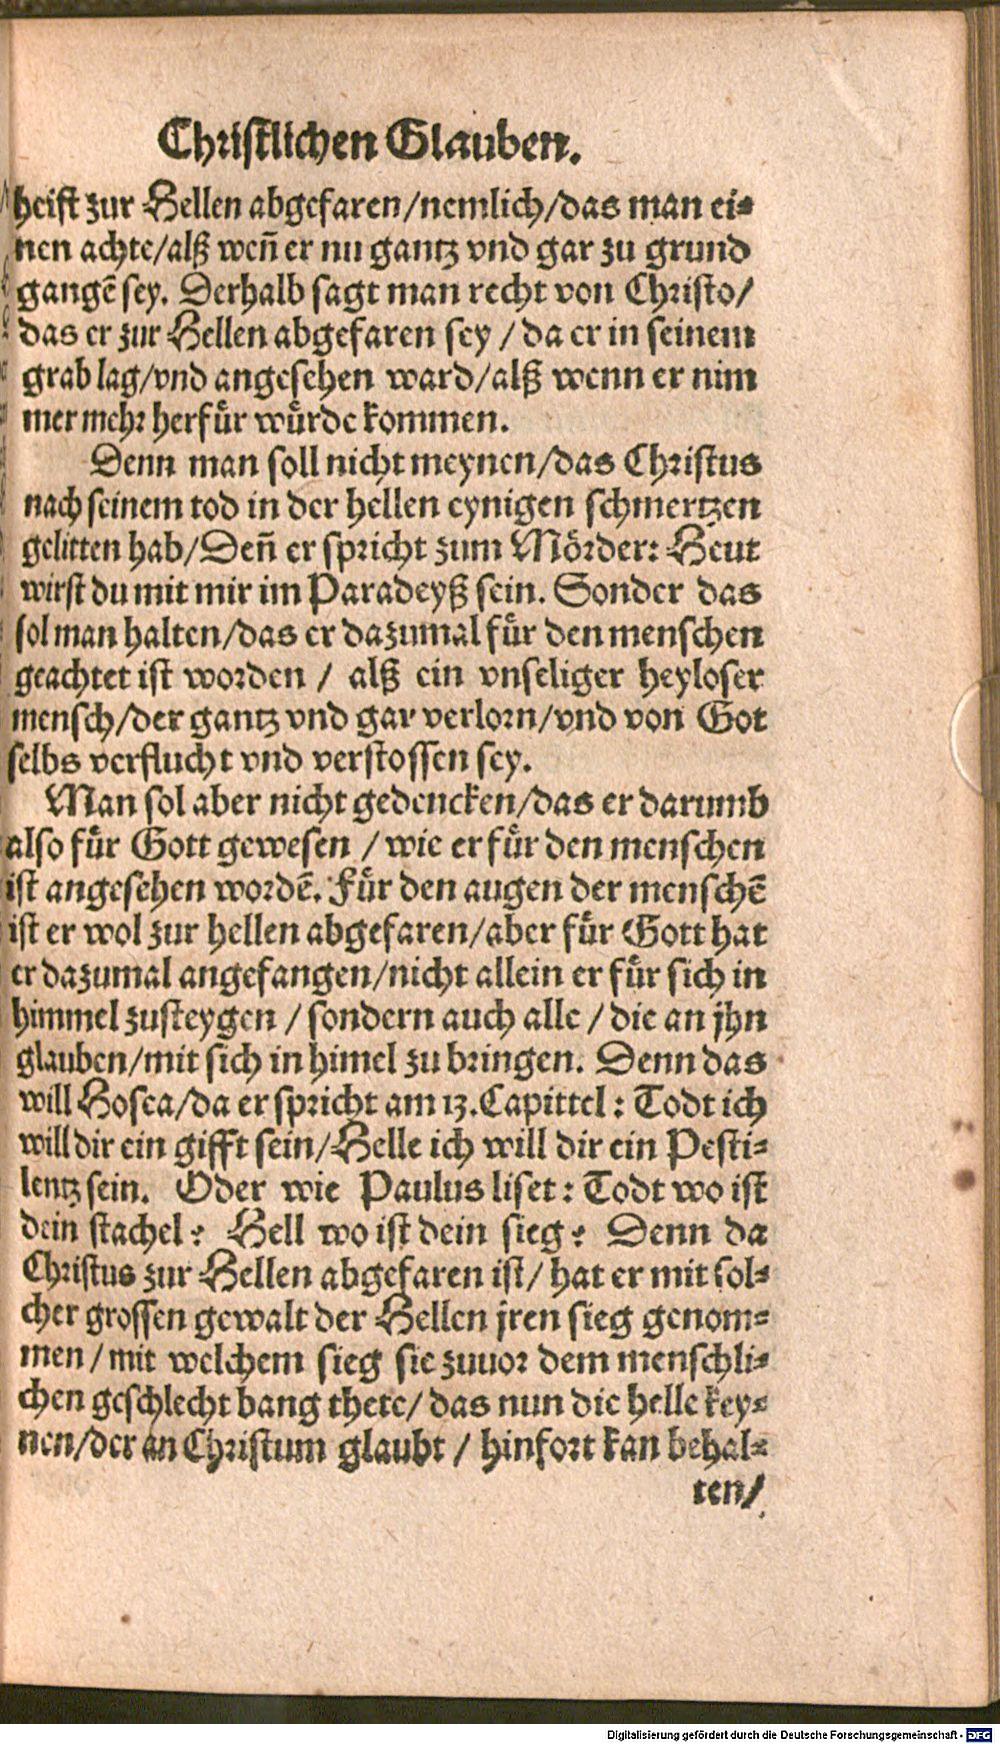 Christlichen Glauben.
heist zur Hellen abgefaren/nemlich/das man ei⸗
nen achte/alß weñ er nu gantz vnd gar zu grund
gangẽ sey. Derhalb sagt man recht von Christo/
das er zur Hellen abgefaren sey / da er in seinem
grab lag/vnd angesehen ward/alß wenn er nim
mer mehr herfür würde kommen.
Denn man soll nicht meynen/das Christus
nach seinem tod in der hellen eynigen schmertzen
gelitten hab/Deñ er spricht zum Mörder: Heut
wirst du mit mir im Paradeyß sein. Sonder das
sol man halten/das er dazumal für den menschen
geachtet ist worden / alß ein vnseliger heyloser
mensch/der gantz vnd gar verlorn/vnd von Got
selbs verflucht vnd verstossen sey.
Man sol aber nicht gedencken/das er darumb
also für Gott gewesen / wie er für den menschen
ist angesehen wordẽ. Für den augen der menschẽ
ist er wol zur hellen abgefaren/aber für Gott hat
er dazumal angefangen/nicht allein er für sich in
himmel zusteygen / sondern auch alle / die an jhn
glauben/mit sich in himel zu bringen. Denn das
will Hosea/da er spricht am 13.Capittel: Todt ich
will dir ein gifft sein/Helle ich will dir ein Pesti⸗
lentz sein. Oder wie Paulus liset: Todt wo ist
dein stachel? Hell wo ist dein sieg? Denn da
Christus zur Hellen abgefaren ist/ hat er mit sol⸗
cher grossen gewalt der Hellen jren sieg genom⸗
men / mit welchem sieg sie zuuor dem menschli⸗
chen geschlecht bang thete/ das nun die helle key⸗
nen/der an Christum glaubt / hinfort kan behal⸗
ten/
Digitalisierung gefördert durch die Deutsche Forschungsgemeinschaft - DFG